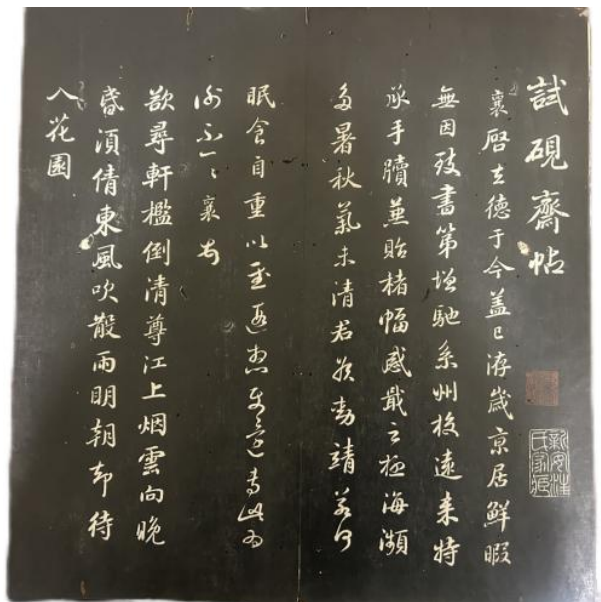 試硯齋帖
襄啓去德于今蓋已洊歲京居鮮暇
無因致書第增馳系州校遠来特
承手牘蒹貽楮幅感戢之極海瀕
多暑秋氣未清君侯動靖若何
眠食自重以慰遐想使還専此為
謝不一一襄
欲尋軒檻倒清尊江上烟雲向晚
昏須倩東風吹散雨明朝却待
入花園